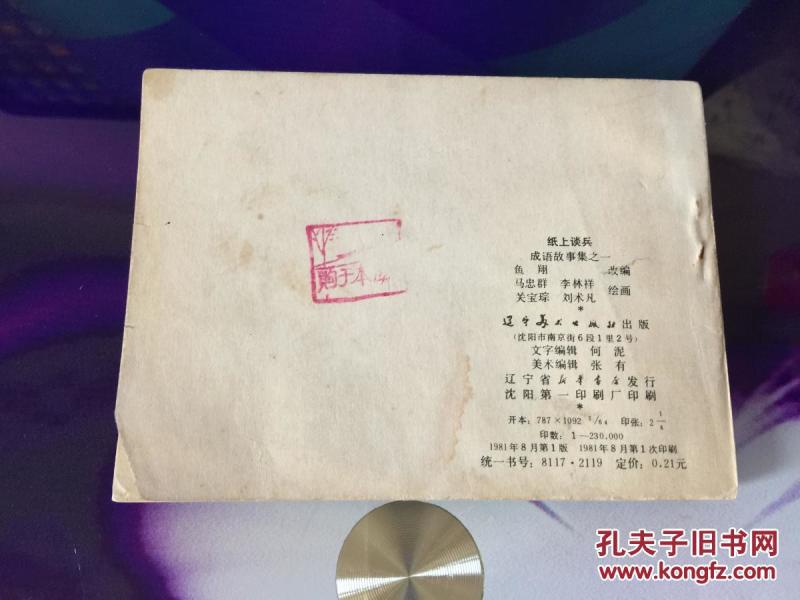 购于本
纸上谈兵
成语故事集之一
鱼 翔 改编
马忠群 李林祥
关宝琮 刘术凡 绘画
*
辽宁美术出版社出版
(沈阳市南京街6段1里2号)
文字编辑 何 泥
美术编辑 张 有
辽宁省新华书店发行
沈阳第一印刷厂印刷
*
开本:787×1092 1/64 印张:2 1/8
印数:1—230,000
1981年8月第1版 1981年8月第1次印刷
统一书号:8117·2119 定价:0.21元
孔夫子旧书网
www.kongfz.com